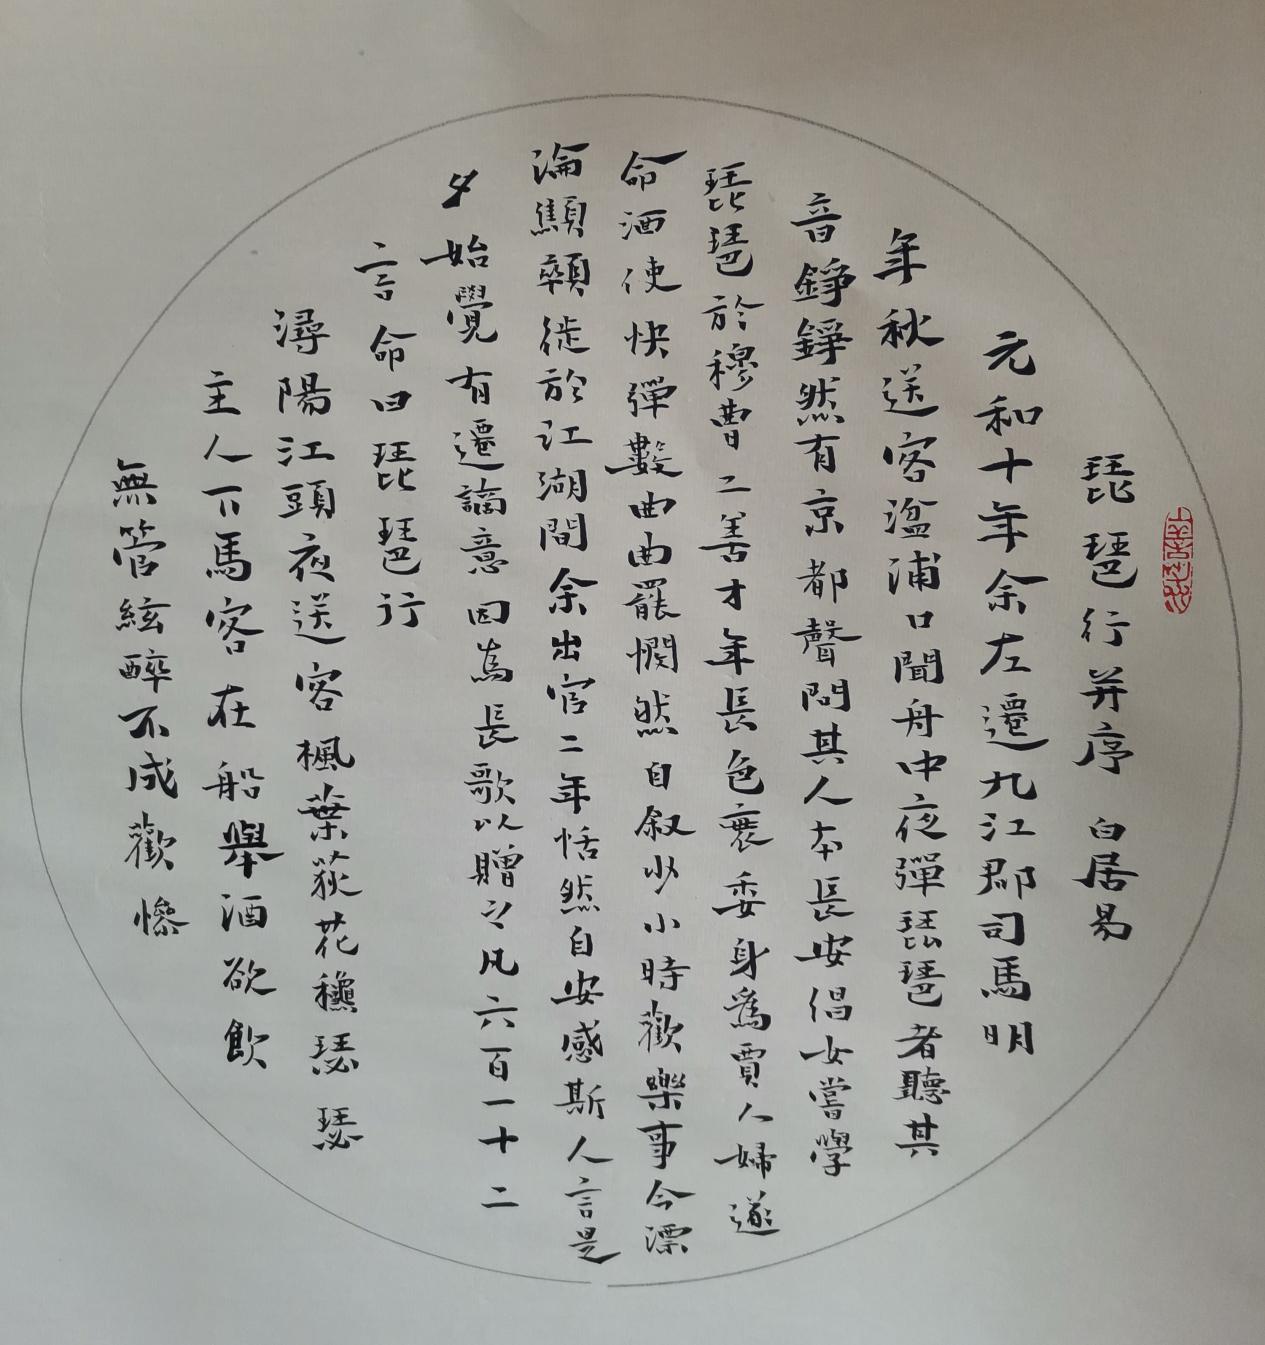 琵琶行并序 白居易
元和十年余左遷九江郡司馬明
年秋送客湓浦口聞舟中夜彈琵琶者聽其
音錚錚然有京都聲問其人本長安倡女嘗學
琵琶於穆曹二善才年長色衰委身爲賈人婦遂
命酒使快彈數曲曲罷憫然自叙少小時歡樂事今漂
淪顦顇徙於江湖間余出官二年恬然自安感斯人言是
夕始覺有遷謫意因為長歌以贈之凡六百一十二
言命曰琵琶行
潯陽江頭夜送客楓葉荻花穐瑟瑟
主人下馬客在船舉酒欲飲
無管絃醉不成歡慘